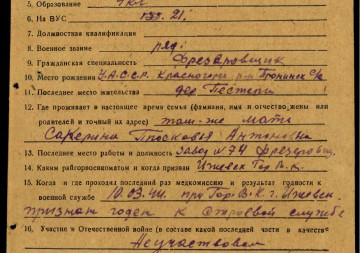 5. Образование 4кл
6. На ВУС 133. 21.
7. Должностная квалификация
8. Военное звание ряд.
9. Гражданская специальность Фрезеровщик
10. Место рождения У.А.С.С.Р. Красногорск р-он Пронинск с/с
11. Последнее место жительства дер Пестери
12. Где проживает в настоящее время семья (фамилия, имя и отчество жены
или родителей и точный их адрес) там-же мать
Сакерина Просковья Антоновна
13. Последнее место работы и должность завод № 74 фрезеровщ.
14. Каким райгорвоенкоматом и когда призван Ижевск Гор
15. Когда и где проходил последний раз медкомиссию и результат годности к
военной службе 10.03.44. при Гор.В.К. г. Ижевск
признан годен к строевой службе
16. Участие в Отечественной войне (в составе какой последней части в качестве
Не участвовал